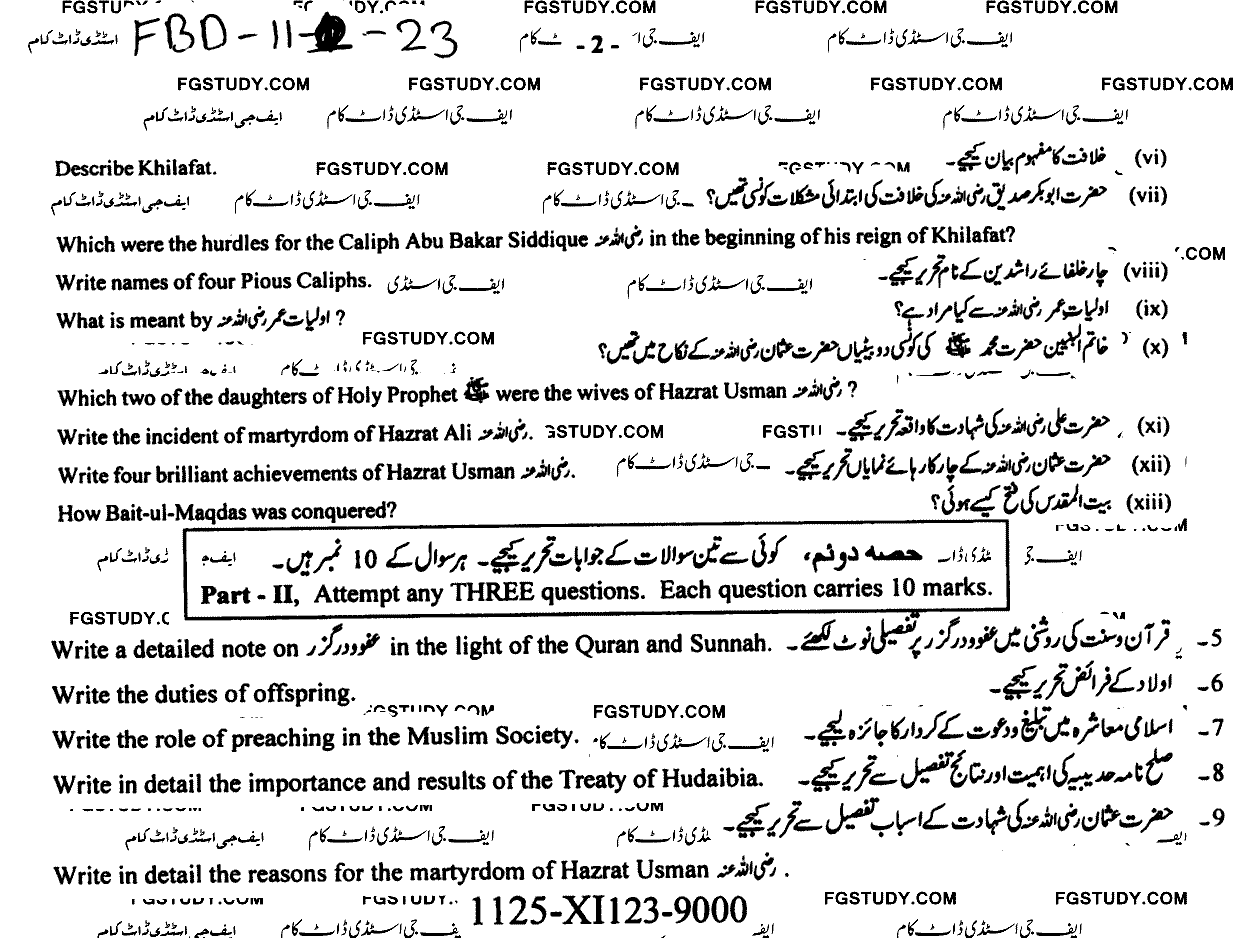 FGSTUDY.COM FGSTUDY.COM FGSTUDY.COM
اسٹڈی ڈاٹ کام FBD-11-23 -2- ایف جی اسٹڈی ڈاٹ کام
FGSTUDY.COM FGSTUDY.COM FGSTUDY.COM FGSTUDY.COM FGSTUDY.COM
ایف جی اسٹڈی ڈاٹ کام ایف جی اسٹڈی ڈاٹ کام ایف جی اسٹڈی ڈاٹ کام ایف جی اسٹڈی ڈاٹ کام
(vi) خلافت کا مفہوم بیان کیجیے۔
Describe Khilafat. FGSTUDY.COM FGSTUDY.COM
(vii) حضرت ابوبکر صدیق رضی اللہ عنہ کی خلافت کی ابتدائی مشکلات کونسی تھیں؟
ایف جی اسٹڈی ڈاٹ کام ایف جی اسٹڈی ڈاٹ کام ایف جی اسٹڈی ڈاٹ کام
Which were the hurdles for the Caliph Abu Bakar Siddique رضی اللہ عنہ in the beginning of his reign of Khilafat?
.COM
(viii) چار خلفائے راشدین کے نام تحریر کیجیے۔
Write names of four Pious Caliphs. ایف جی اسٹڈی ایف جی اسٹڈی ڈاٹ کام
(ix) اولیات عمر رضی اللہ عنہ سے کیا مراد ہے؟
What is meant by اولیات عمر رضی اللہ عنہ ?
FGSTUDY.COM
(x) خاتم النبیین حضرت محمد ﷺ کی کونسی دو بیٹیاں حضرت عثمان رضی اللہ عنہ کے نکاح میں تھیں؟
Which two of the daughters of Holy Prophet ﷺ were the wives of Hazrat Usman رضی اللہ عنہ ?
(xi) حضرت علی رضی اللہ عنہ کی شہادت کا واقعہ تحریر کیجیے۔
Write the incident of martyrdom of Hazrat Ali رضی اللہ عنہ. GSTUDY.COM
(xii) حضرت عثمان رضی اللہ عنہ کے چار کارہائے نمایاں تحریر کیجیے۔
Write four brilliant achievements of Hazrat Usman رضی اللہ عنہ. جی اسٹڈی ڈاٹ کام
(xiii) بیت المقدس کی فتح کیسے ہوئی؟
How Bait-ul-Maqdas was conquered?
حصہ دوئم، کوئی سے تین سوالات کے جوابات تحریر کیجیے۔ ہر سوال کے 10 نمبر ہیں۔
Part - II, Attempt any THREE questions. Each question carries 10 marks.
5- قرآن و سنت کی روشنی میں عفو و درگزر پر تفصیلی نوٹ لکھئے۔
Write a detailed note on عفو و درگزر in the light of the Quran and Sunnah.
6- اولاد کے فرائض تحریر کیجیے۔
Write the duties of offspring.
FGSTUDY.COM
7- اسلامی معاشرہ میں تبلیغ و دعوت کے کردار کا جائزہ لیجیے۔
Write the role of preaching in the Muslim Society. ایف جی اسٹڈی ڈاٹ کام
8- صلح نامہ حدیبیہ کی اہمیت اور نتائج تفصیل سے تحریر کیجیے۔
Write in detail the importance and results of the Treaty of Hudaibia.
9- حضرت عثمان رضی اللہ عنہ کی شہادت کے اسباب تفصیل سے تحریر کیجیے۔
ایف جی اسٹڈی ڈاٹ کام ایف جی اسٹڈی ڈاٹ کام
Write in detail the reasons for the martyrdom of Hazrat Usman رضی اللہ عنہ .
1125-XI123-9000 FGSTUDY.COM FGSTUDY.COM